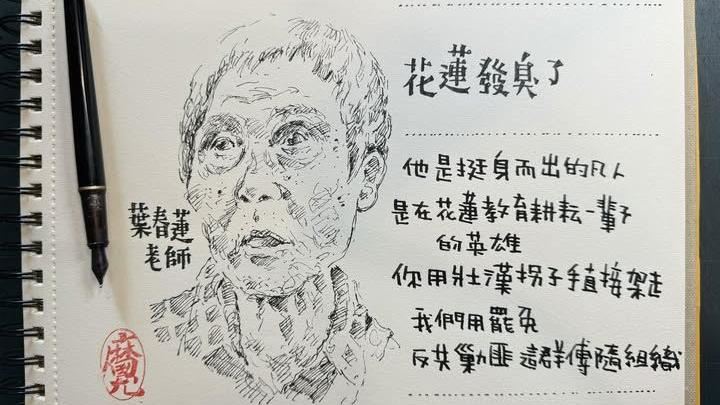 花蓮發臭了
他是挺身而出的凡人
是在花蓮教育耕耘一輩子
的英雄
你用壯漢拐子手直接架走
我們用罷免
反共剿匪這群傅隨組織
葉春蓮
老師